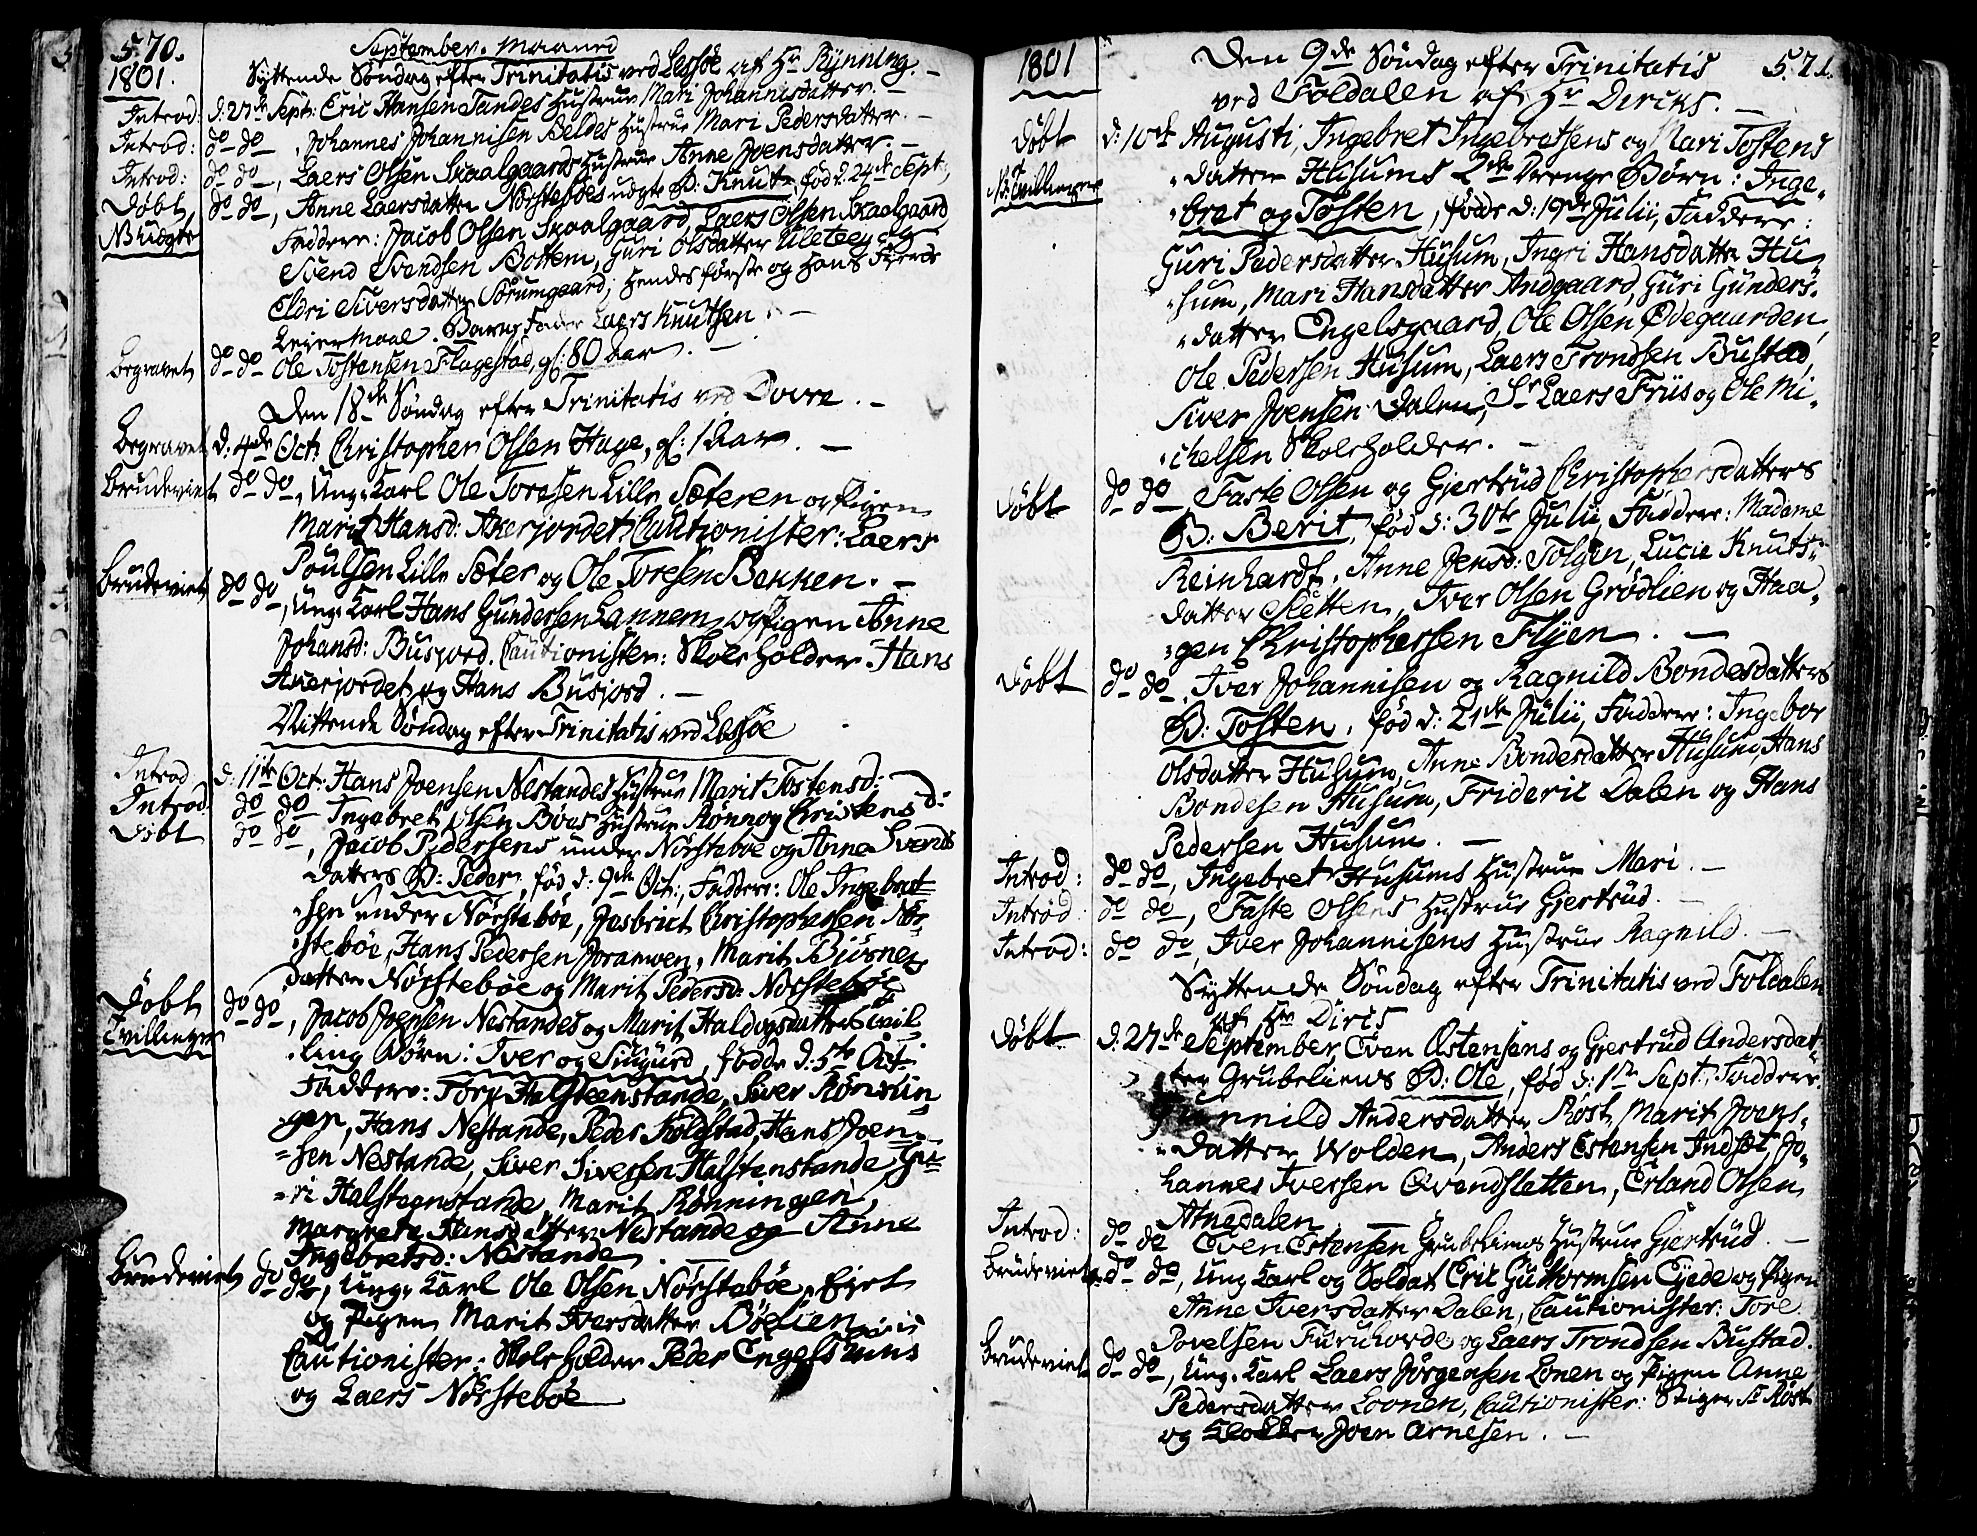 570.
1801.
September Maaned
Syttende Søndag efter Trinitatis ved Lessøe af Hr Rynning. –
Introd: d: 27de Sept: Eric Hansen Tandes Hustrue Mari Johannisdatter. –
Introd: do do, Johannes Johannisen Beldes Hustrue Mari Pedersdatter. –
Introd: do do, Laers Olsen Skaalgaards Hustrue Anne Joensdatter. –
Døbt, do do, Anne Laersdatter Nørstebøes uægte B: Knut, fød d: 24de Sept:,
NB uægte Faddere: Jacob Olsen Skaalgaard, Laers Olsen Skaalgaard
Svend Svendsen Bottem, Guri Olsdatter
Eldri Siversdatter Sørumgaard; Hendes første og Hans
Leiermaal. Barne Fader Laers Knutsen. –
Begravet do do Ole Tostensen Flagestad, gl: 80 Aar. –
Den 18de Søndag efter Trinitatis ved Dovre. –
Begravet d: 4de Oct: Christopher Olsen Hage, gl: 1 Aar. –
Brudeviet do do, Ung-Karl Ole Toresen Lille Sæteren og Pigen
Marit Hansd: Akerjordet, Cautionister: Laers
Poulsen Lille Sæter og Ole Toresen Bekken. –
Brudeviet do do, Ung-Karl Hans Gundersen Lannem og Pigen Anne
Johansd: Busjord. Cautionister: Skoleholder Hans
Akerjordet og Hans Busjord. –
Nittende Søndag efter Trinitatis ved Lessøe
Introd d: 11te Oct: Hans Joensen Nestandes Hustrue Marit Tostensd: –
Introd do do Ingebret Olsen Bøes Hustrue Rønnog Christensd:
Døbt do do, Jacob Pedersens under Nørstebøe og Anne Svends
datters B: Peder, fød d: 9de Oct:, Faddere: Ole Ingebret
sen under Nørstebøe, Jasbriet Christophersen Nør-
stebøe, Hans Pedersen Joramoen, Marit Biørns
datter Nørstebøe og Marit Pedersd: Nørstebøe
Døbt do do, Jacob Joensen Nestandes og Marit Haldogsdatters Tvil-
Tvillinger ling Børn: Iver og Siugurd, fødde d: 5te Oct:
Faddere: Tore Halsteenstande, Siver Rønnin
gen, Hans Nestande, Peder Skolstad, Hans Joen-
sen Nestande, Siver Siversen Halstenstande, Gu-
ri Halsteenstande, Marit Rønningen,
Margrete Hansdatter Nestande og Anne
Ingebretsd: Nestande –
Brudeviet do do, Ung-Karl Ole Olsen Nørstebøe Eiet
og Pigen Marit Iversdatter Bøelien
Cautionister: Skoleholder Peder Engelshuus
og Laers Nørstebøe
1801
571.
Den 9de Søndag efter Trinitatis
ved Foldalen af Hr Dircks. –
Døbt d: 10de Augusti, Ingebret Ingebretsens og Mari Tostens
NB Tvillinger datter Husums 2de Drenge Børn: Inge-
bret og Tosten, fødde d: 19de Julii, Faddere:
Guri Pedersdatter Husum, Ingri Hansdatter Hu
sum, Mari Hansdatter Andgaard, Guri Gunders-
datter Engelsgaard, Ole Olsen Ødegaarden,
Ole Pedersen Husum, Laers Trondsen Bustad,
Siver Joensen Dalen, Sr Laers Friis og Ole Mi-
chelsen Skoleholder. –
Døbt do do, Faste Olsen og Gjertrud Christophersdatters
B: Berit, fød d: 30te Julii, Faddere: Madame
Reinhardt, Anne Jensd: Tolgen, Lucie Knuts-
datter Sletten, Iver Olsen Grødlien og Haa-
gen Christophersen Flyen. –
Døbt do do, Iver Johannisen og Ragnild Bondesdatters
B: Tosten, fød d: 21de Julii, Faddere: Ingebor
Olsdatter Husum, Anne Bondesdatter Husum, Hans
Bondesen Husum, Frideric Dalen og Hans
Pedersen Husum. –
Introd: do do, Ingebret Husums Hustrue Mari. –
Introd: do do, Faste Olsens Hustrue Gjertrud. –
Introd: do do, Iver Johannisens Hustrue Ragnild. –
Syttende Søndag efter Trinitatis ved Foldalen
af Hr Dircs
Døbt d: 27de September, Even Østensens og Gjertrud Andersdat-
ter Grubeliens B: Ole, fød d: 1ste Sept:, Faddere:
Gunnild Andersdatter Røst, Marit Joens-
datter Wolden, Anders Estensen Indset, Jo-
hannes Iversen Qvendsletten, Erland Olsen
Atnedalen –
Introd: do do Even Estensen Grubeliens Hustrue Gjertrud. –
Brudeviet do do, Ung Karl og Soldat Eric Guttormsen Eyede og Pigen
Anne Iversdatter Dalen, Cautionister: Tore
Povelsen Furuhovde og Laers Trondsen Bustad.
Brudeviet do do, Ung-Karl Laers Jørgensen Lonen og Pigen Anne
Pedersdatter Loonen, Cautionister: Stiger Sr Røst
og Klokker Joen Arnesen. –